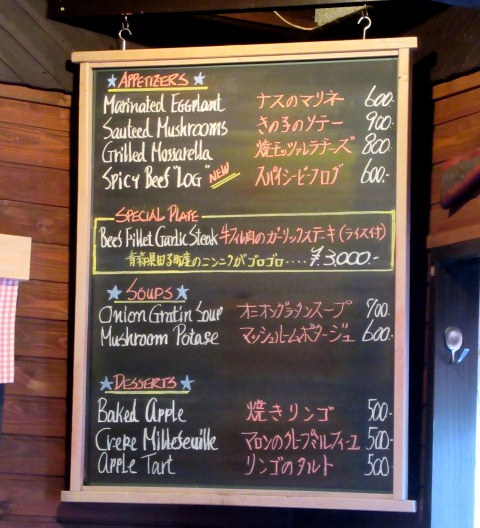 ★ APPETIZERS ★
Marinated Eggplant ナスのマリネ 600-
Sauteed Mushrooms きの子のソテー 900-
Grilled Mossarella 焼モッツァレラチーズ 800-
Spicy Beef "LOG" NEW スパイシービーフログ 600-
SPECIAL PLATE
Beef Fillet Garlic Steak 牛フィレ肉のガーリックステキ(ライス付)
青森県田子町産のニンニクがゴロゴロ.... ¥3,000-
★ SOUPS ★
Onion Gratin Soup オニオングラタンスープ 700-
Mushroom Potage マッシュルームポタージュ 600-
★ DESSERTS ★
Baked Apple 焼きリンゴ 500-
Crepe Millefeuille マロンのクレープミルフィーユ 500-
Apple Tart リンゴのタルト 500-